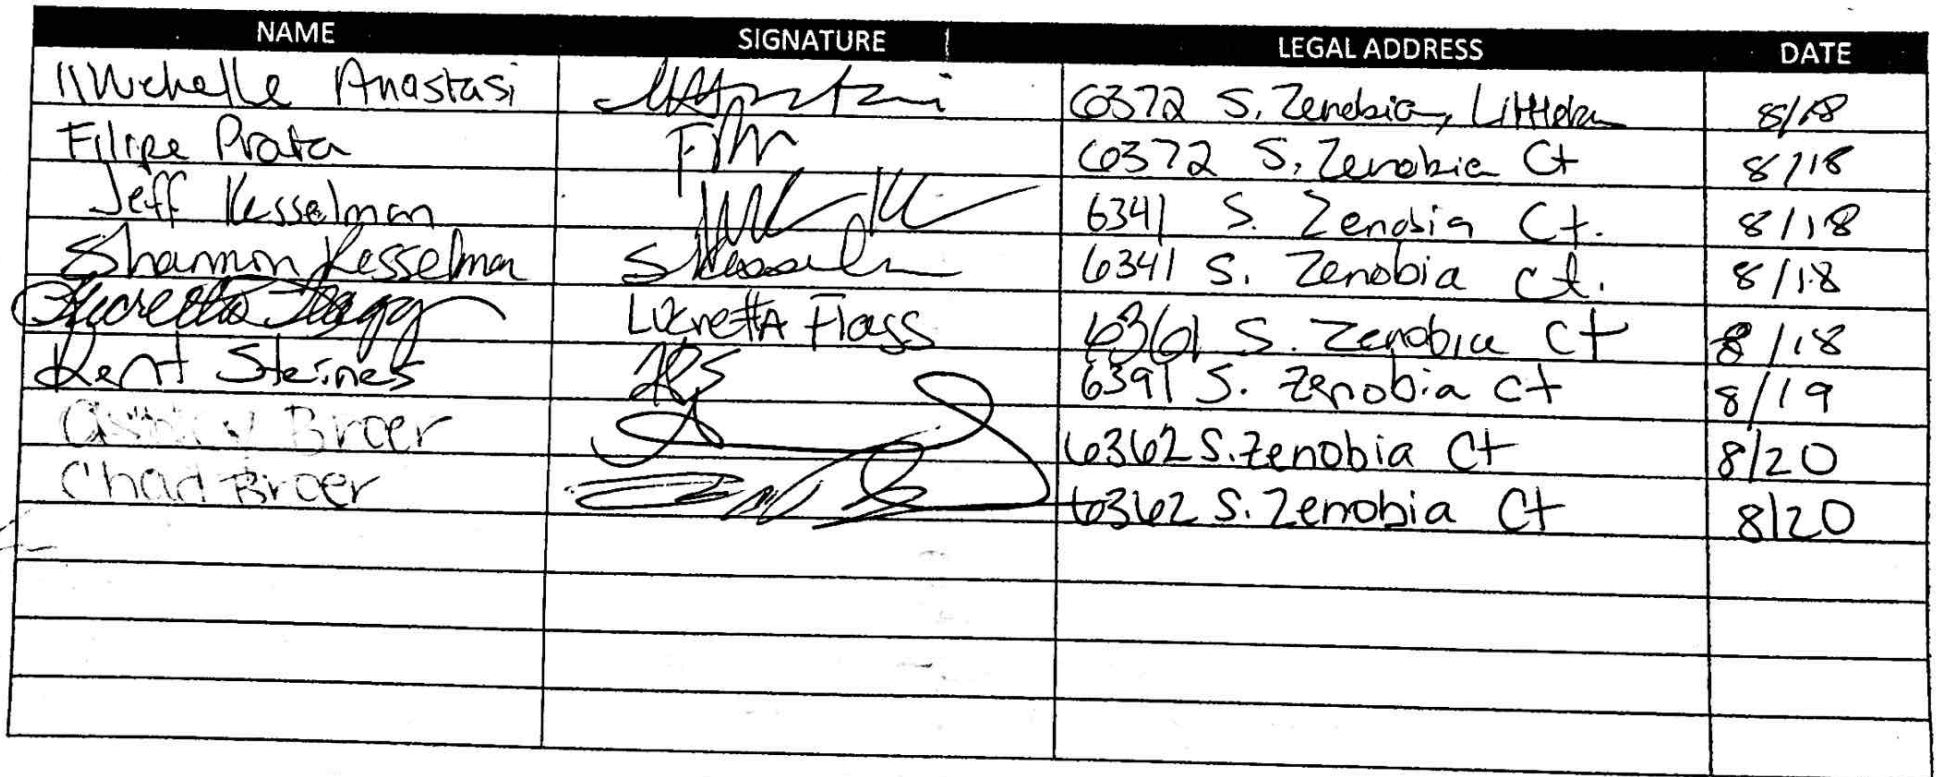 NAME SIGNATURE LEGAL ADDRESS DATE
Michelle Anastasi 6372 S. Zenobia, Littleton 8/18
Filipe Prata 6372 S. Zenobia Ct 8/18
Jeff Kesselman 6341 S. Zenobia Ct. 8/18
Shannon Kesselman SKesseln 6341 S. Zenobia Ct. 8/18
LucrettA Flagg 6361 S. Zenobia Ct 8/18
Kent Steines KS 6391 S. Zenobia Ct 8/19
Broer 6362 S. Zenobia Ct 8/20
Chad Broer 6362 S. Zenobia Ct 8/20